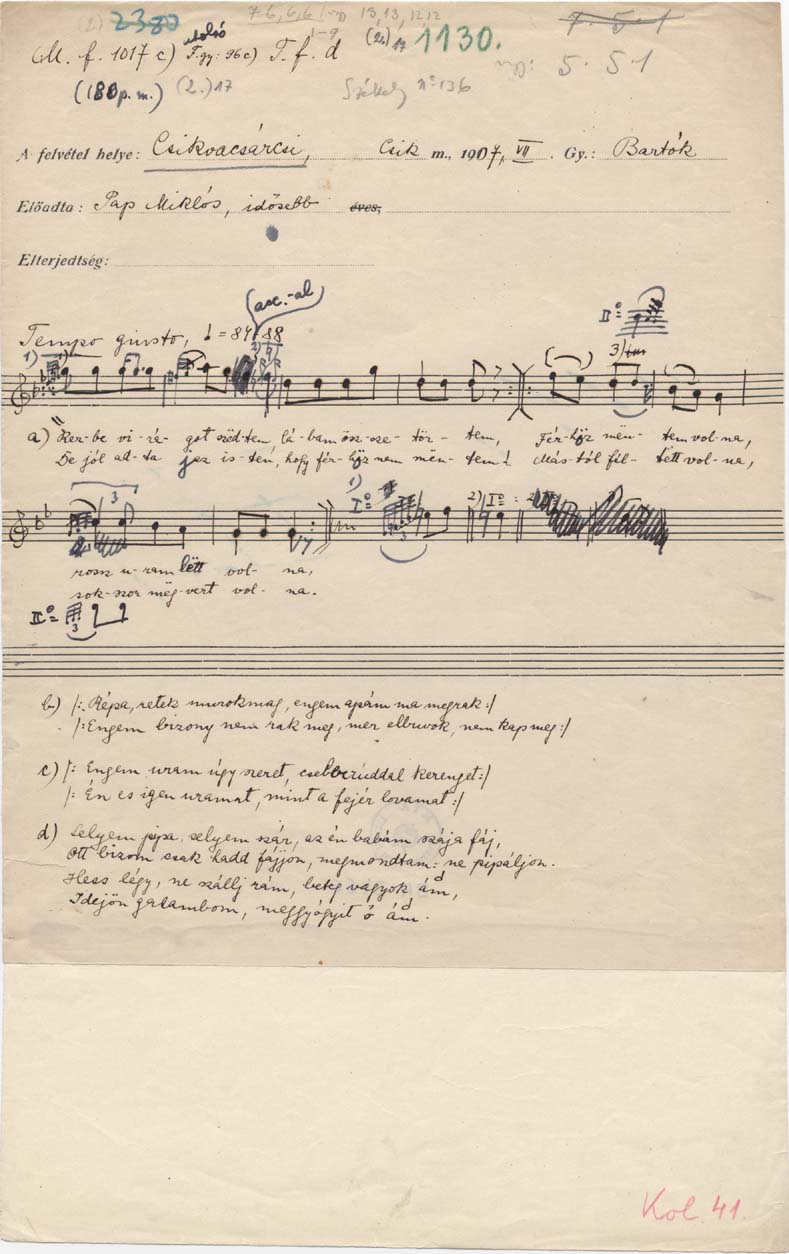 2380 7 6, 6, 6 13, 13, 12, 12 7 . 5 . 1
M. f. 1017 c) utolsó F. gy: 96 c) T. f. d 1-9 (2.) 17 1130. 5 . 5 . 1
(180 p. m.) (2.) 17 Székely nº 136
A felvétel helye: Csikvacsárcsi, Csik m., 1907, VII. Gy.: Bartók
Előadta: Pap Miklós, idősebb éves,
Elterjedtség:
(asc.-al
Tempo giusto, = 84 88 IIº =
1) 2) 3)
a) Ker-be vi-rá- got szëd-tem lá-bam ösz-sze- tör- tem, Fér-höz mën- tem vol-na,
De jól ad-ta jaz is-ten, hogy fér-höz nem mën- tem! Más-tól fél- tëtt vol-na,
3 1) Iº = 3 2) Iº :
rossz u-ram lëtt vol- na,
sok-szor mëg-vert vol- na.
IIº = 3
b) /: Répa, retek murokmag, engem apám ma megrak :/
/: Engem bizony nem rak meg, mer elbuvok, nem kap meg :/
c) /: Engem uram úgy szeret, csebberúddal kerenget :/
/: Én es igen uramat, mint a fejér lovamat :/
d) Selyem pipa, selyem szár, az én babám szája fáj,
Ott bizon csak hadd fájjon, megmondtam: ne pipáljon.
Hess légy, ne szállj rám, beteg vagyok ám,
Idejön galambom, meggyógyit ő ám.
Kol. 41.